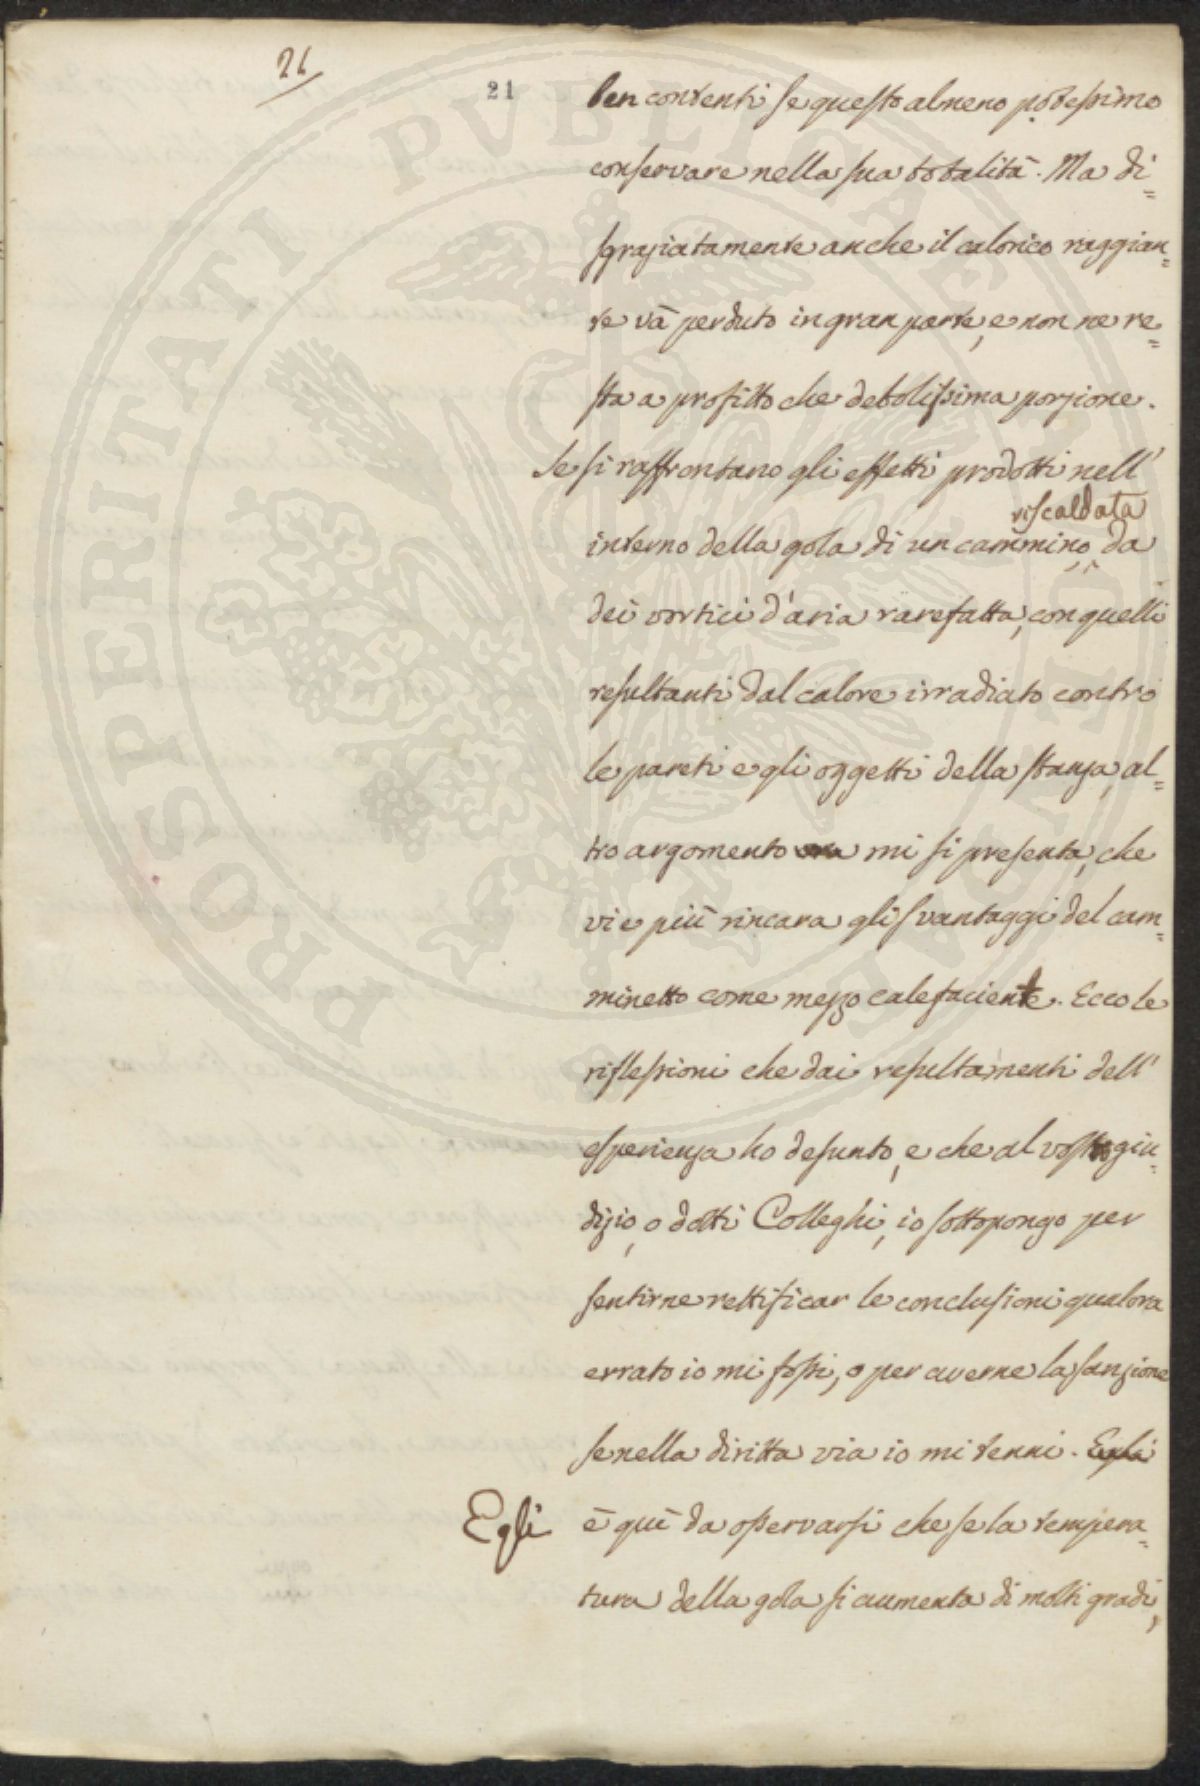 21
21
ben contenti se questo almeno potessimo
conservare nella sua totalità. Ma di=
sgraziatamente anche il calorico raggian=
te và perduto in gran parte, e non ne re=
sta a profitto che debolissima porzione.
Se si raffrontano gli effetti prodotti nell'
riscaldata
interno della gola di un cammino, da
dei vortici d'aria rarefatta, con quelli
resultanti dal calore irradiato contro
le pareti e gli oggetti della stanza, al=
tro argomento ora mi si presenta, che
vie più rincara gli svantaggi del cam=
minetto come mezzo calefaciente. Ecco le
riflessioni che dai resultamenti dell'
esperienza ho desunto, e che al vostro giu=
dizio, o dotti Colleghi, io sottopongo per
sentirne rettificar le conclusioni qualora
errato io mi fossi, o per averne la sanzione
se nella diritta via io mi tenni. Egli
Egli è quì da osservarsi che se la tempera=
tura della gola si aumenta di molti gradi,
PROSPERITATI PVBLICAE AVGENDAE